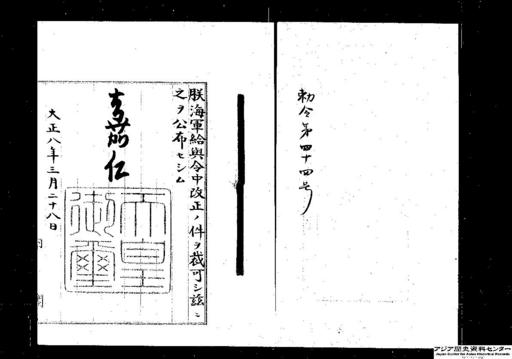 勅令第四十四号
朕海軍給與令中改正ノ件ヲ裁可シ玆ニ
之ヲ公布セシム
嘉仁
天皇御璽
大正八年三月二十八日
アジア歴史資料センター
Japan Center for Asian Historical Records